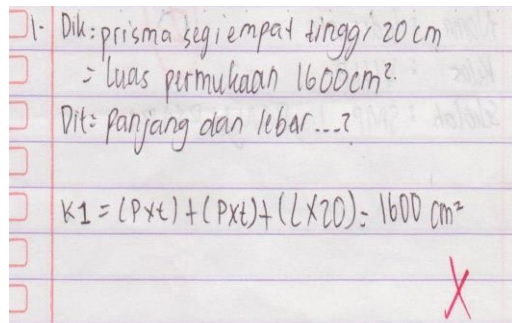 1. Dik: prisma segiempat tinggi 20 cm
= Luas permukaan 1600 cm².
Dit: Panjang dan lebar...?
K1 = (Pxt) + (Pxt) + (LX20) = 1600 cm²